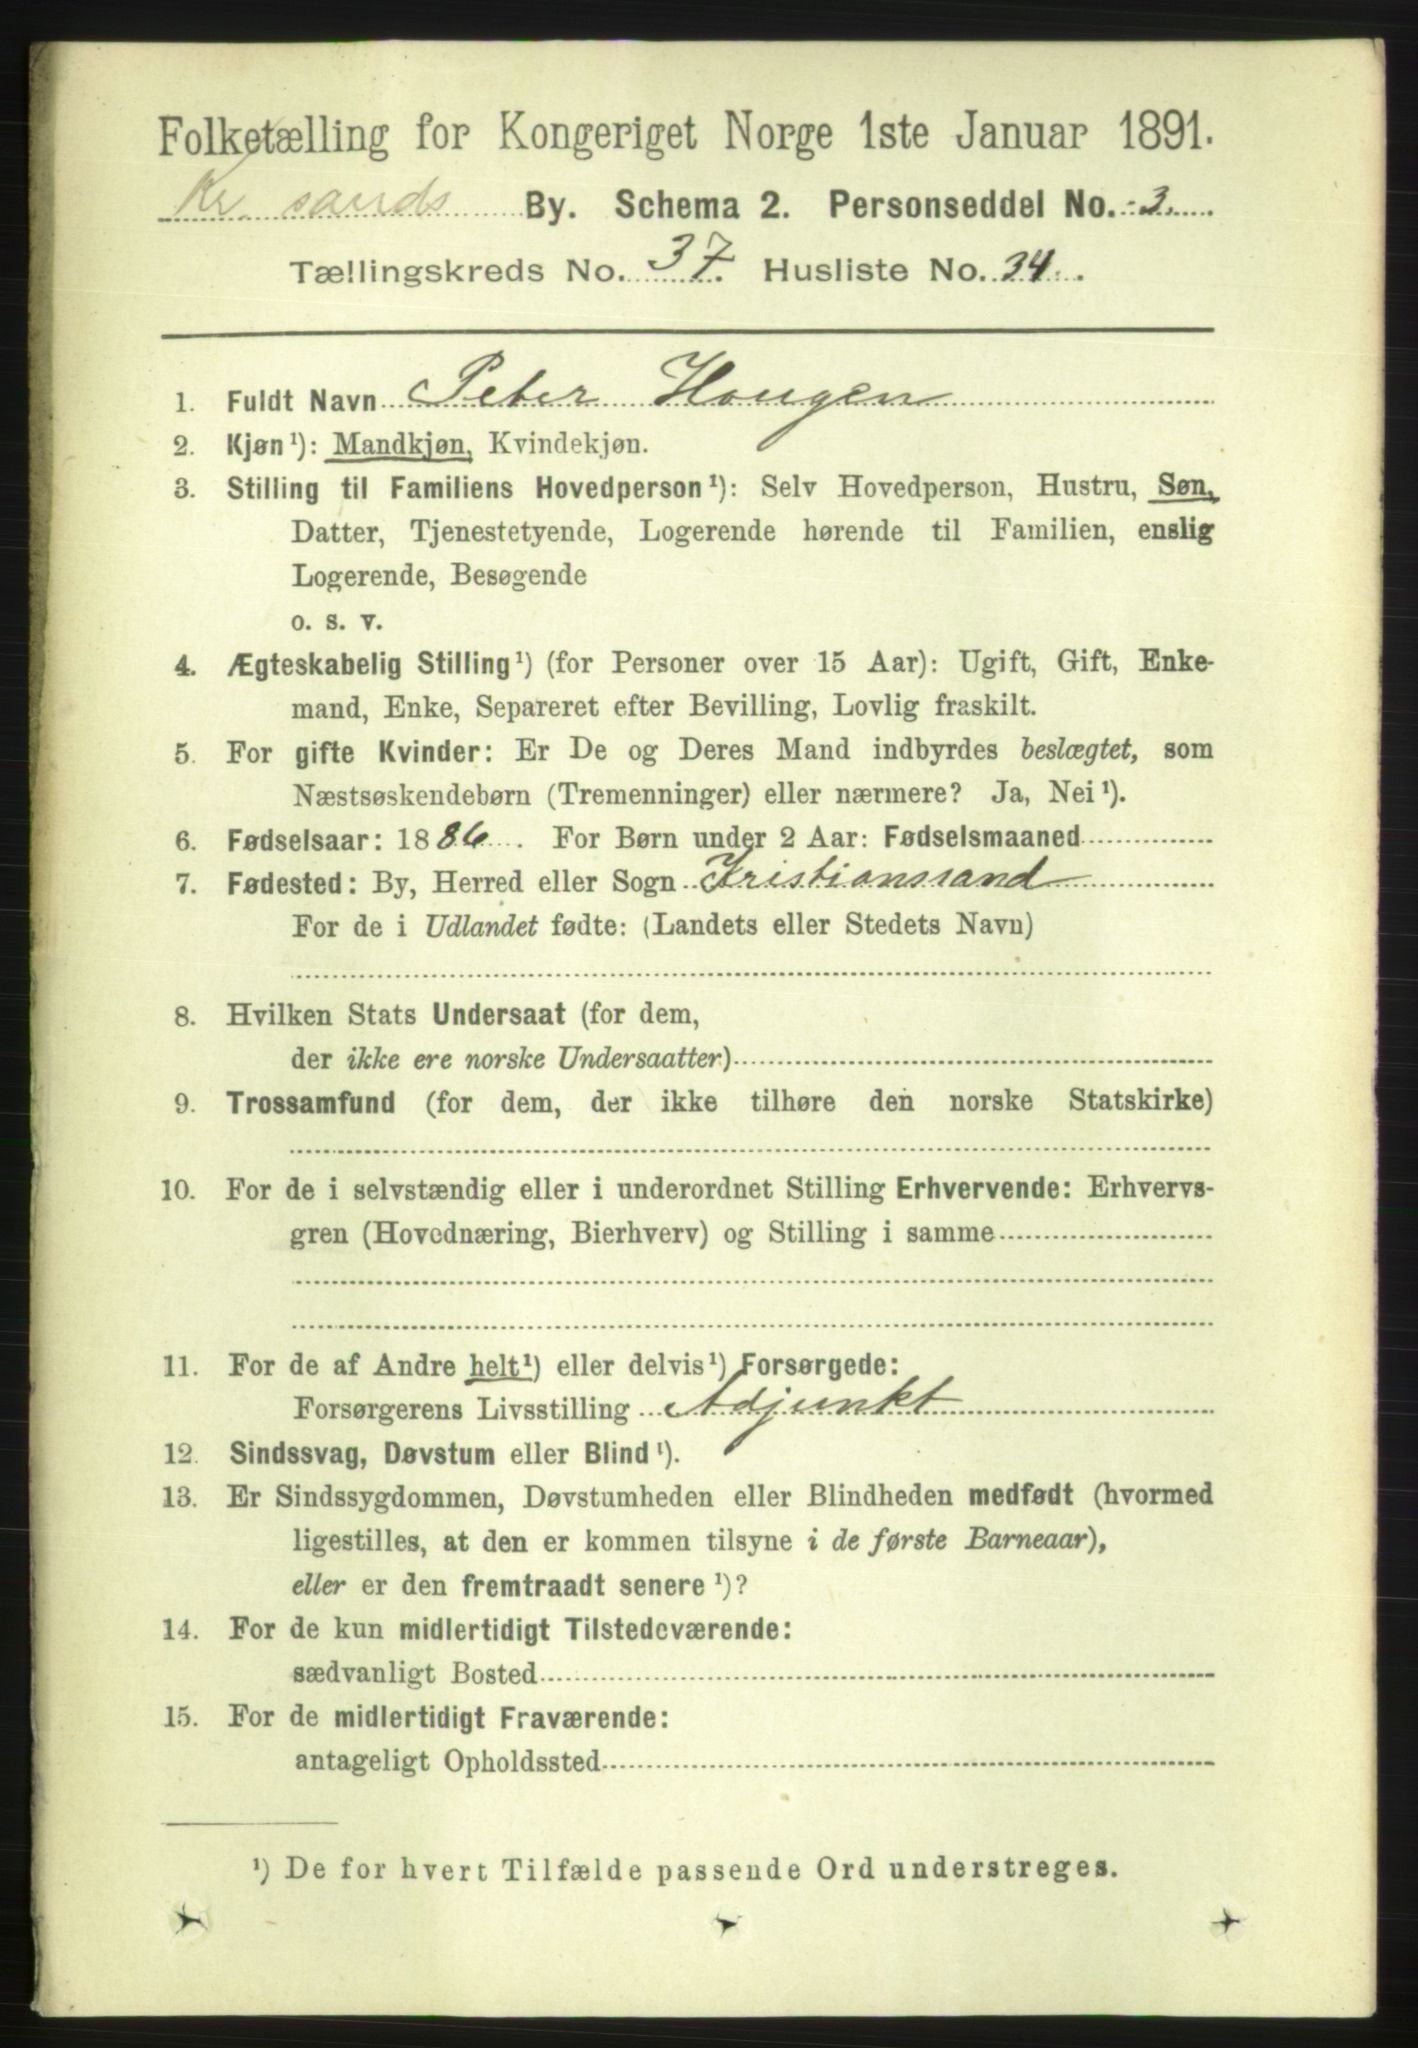 Folketælling for Kongeriget Norge 1ste Januar 1891.
Kr. sands By. Schema 2. Personseddel No. 3.
Tællingskreds No. 37. Husliste No. 34.
1. Fuldt Navn Peter Hougen
2. Kjøn¹): Mandkjøn, Kvindekjøn.
3. Stilling til Familiens Hovedperson¹): Selv Hovedperson, Hustru, Søn,
Datter, Tjenestetyende, Logerende hørende til Familien, enslig
Logerende, Besøgende
o. s. v.
4. Ægteskabelig Stilling¹) (for Personer over 15 Aar): Ugift, Gift, Enke-
mand, Enke, Separeret efter Bevilling, Lovlig fraskilt.
5. For gifte Kvinder: Er De og Deres Mand indbyrdes beslægtet, som
Næstsøskendebørn (Tremenninger) eller nærmere? Ja, Nei¹).
6. Fødselsaar: 1886. For Børn under 2 Aar: Fødselsmaaned
7. Fødested: By, Herred eller Sogn Kristianssand
For de i Udlandet fødte: (Landets eller Stedets Navn)
8. Hvilken Stats Undersaat (for dem,
der ikke ere norske Undersaatter)
9. Trossamfund (for dem, der ikke tilhøre den norske Statskirke)
10. For de i selvstændig eller i underordnet Stilling Erhvervende: Erhvervs-
gren (Hovednæring, Bierhverv) og Stilling i samme
11. For de af Andre helt¹) eller delvis¹) Forsørgede:
Forsørgerens Livsstilling Adjunkt
12. Sindssvag, Døvstum eller Blind¹).
13. Er Sindssygdommen, Døvstumheden eller Blindheden medfødt (hvormed
ligestilles, at den er kommen tilsyne i de første Barneaar),
eller er den fremtraadt senere¹)?
14. For de kun midlertidigt Tilstedeværende:
sædvanligt Bosted
15. For de midlertidigt Fraværende:
antageligt Opholdssted
¹) De for hvert Tilfælde passende Ord understreges.